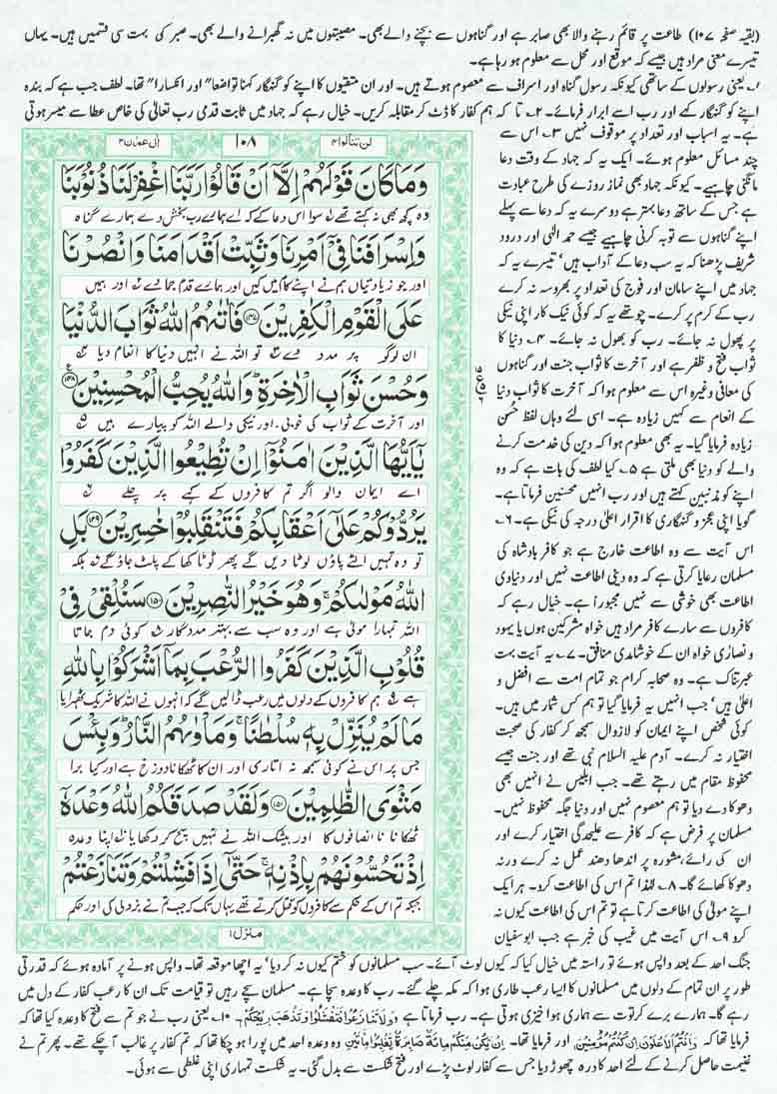 (بقیہ صفحہ ۱۰۷) طاعت پر قائم رہنے والا بھی صابر ہے اور گناہوں سے بچنے والے بھی۔ مصیبتوں میں نہ گھبرانے والے بھی۔ صبر کی بہت سی قسمیں ہیں۔ یہاں
تیسرے معنی مراد ہیں جیسے کہ موقع اور محل سے معلوم ہو رہا ہے۔
۱۔ یعنی رسولوں کے ساتھی کیونکہ رسول گناہ اور اسراف سے معصوم ہوتے ہیں۔ اور ان متقیوں کا اپنے کو گنہگار کہنا تواضعاً اور انکساراً تھا۔ لطف جب ہے کہ بندہ
اپنے کو گنہگار کہے اور رب اسے ابرار فرمائے۔ ۲۔ تا کہ ہم کفار کا ڈٹ کر مقابلہ کریں۔ خیال رہے کہ جہاد میں ثابت قدمی رب تعالیٰ کی خاص عطا سے میسر ہوتی
لن تنالوا ۴
۱۰۸
اٰل عمران ۳
وَمَا كَانَ قَوْلَهُمْ اِلَّاۤ اَنْ قَالُوْا رَبَّنَا اغْفِرْ لَنَا ذُنُوْبَنَا
وہ کچھ بھی نہ کہتے تھے سوا اس دعا کے کہ اے ہمارے رب بخش دے ہمارے گناہ
وَاِسْرَافَنَا فِيْۤ اَمْرِنَا وَثَبِّتْ اَقْدَامَنَا وَانْصُرْنَا
اور جو زیادتیاں ہم نے اپنے کام میں کیں اور ہمارے قدم جما دے اور ہمیں
عَلَى الْقَوْمِ الْكٰفِرِيْنَ ﴿۱۴۷﴾ فَاٰتٰىهُمُ اللّٰهُ ثَوَابَ الدُّنْيَا
ان کافر لوگوں پر مدد دے تو اللہ نے انہیں دنیا کا انعام دیا
وَحُسْنَ ثَوَابِ الْاٰخِرَةِ ؕ وَاللّٰهُ يُحِبُّ الْمُحْسِنِيْنَ ﴿۱۴۸﴾
اور آخرت کے ثواب کی خوبی۔ اور نیکی والے اللہ کو پیارے ہیں
يٰۤاَيُّهَا الَّذِيْنَ اٰمَنُوْۤا اِنْ تُطِيْعُوا الَّذِيْنَ كَفَرُوْا
اے ایمان والو اگر تم کافروں کے کہے پر چلے
يَرُدُّوْكُمْ عَلٰۤى اَعْقَابِكُمْ فَتَنْقَلِبُوْا خٰسِرِيْنَ ﴿۱۴۹﴾ بَلِ
تو وہ تمہیں الٹے پاؤں لوٹا دیں گے پھر ٹوٹا کھا کے پلٹ جاؤ گے بلکہ
اللّٰهُ مَوْلٰىكُمْ ۚ وَهُوَ خَيْرُ النّٰصِرِيْنَ ﴿۱۵۰﴾ سَنُلْقِيْ فِيْ
اللہ تمہارا مولیٰ ہے اور وہ سب سے بہتر مددگار کوئی دم جاتا
قُلُوْبِ الَّذِيْنَ كَفَرُوا الرُّعْبَ بِمَاۤ اَشْرَكُوْا بِاللّٰهِ
ہے ہم کافروں کے دلوں میں رعب ڈالیں گے کہ انہوں نے اللہ کا شریک ٹھہرایا
مَا لَمْ يُنَزِّلْ بِهٖ سُلْطٰنًا ۚ وَمَاْوٰىهُمُ النَّارُ ؕ وَبِئْسَ
جس پر اس نے کوئی سمجھ نہ اتاری اور ان کا ٹھکانا دوزخ ہے اور کیا برا
مَثْوَى الظّٰلِمِيْنَ ﴿۱۵۱﴾ وَلَقَدْ صَدَقَكُمُ اللّٰهُ وَعْدَهٗۤ
ٹھکانا ناانصافوں کا اور بیشک اللہ نے تمہیں سچ کر دکھایا اپنا وعدہ
اِذْ تَحُسُّوْنَهُمْ بِاِذْنِهٖ ۚ حَتّٰۤى اِذَا فَشِلْتُمْ وَتَنَازَعْتُمْ
جبکہ تم اس کے حکم سے کافروں کو قتل کرتے تھے یہاں تک کہ جب تم نے بزدلی کی اور حکم
منزل ۱
ہے۔ یہ اسباب اور تعداد پر موقوف نہیں ۳۔ اس سے
چند مسائل معلوم ہوئے۔ ایک یہ کہ جہاد کے وقت دعا
مانگنی چاہیے۔ کیونکہ جہاد بھی نماز روزے کی طرح عبادت
ہے جس کے ساتھ دعا بہتر ہے دوسرے یہ کہ دعا سے پہلے
اپنے گناہوں سے توبہ کرنی چاہیے جیسے حمد الٰہی اور درود
شریف پڑھنا کہ یہ سب دعا کے آداب ہیں‘ تیسرے یہ کہ
جہاد میں اپنے سامان اور فوج کی تعداد پر بھروسہ نہ کرے
رب کے کرم پر کرے۔ چوتھے یہ کہ کوئی نیک کار اپنی نیکی
پر پھول نہ جائے۔ رب کو بھول نہ جائے۔ ۴۔ دنیا کا
ثواب فتح و ظفر ہے اور آخرت کا ثواب جنت اور گناہوں
کی معافی وغیرہ اس سے معلوم ہوا کہ آخرت کا ثواب دنیا
کے انعام سے کہیں زیادہ ہے۔ اسی لئے وہاں لفظ حُسن
زیادہ فرمایا گیا۔ یہ بھی معلوم ہوا کہ دین کی خدمت کرنے
والے کو دنیا بھی ملتی ہے ۵۔ کیا لطف کی بات ہے کہ وہ
اپنے کو مذنبین کہتے ہیں اور رب انہیں محسنین فرماتا ہے۔
گویا اپنی عجز و گنہگاری کا اقرار اعلیٰ درجہ کی نیکی ہے۔ ۶۔
اس آیت سے وہ اطاعت خارج ہے جو کافر بادشاہ کی
مسلمان رعایا کرتی ہے کہ وہ دینی اطاعت نہیں اور دنیاوی
اطاعت بھی خوشی سے نہیں مجبوراً ہے۔ خیال رہے کہ
کافروں سے سارے کافر مراد ہیں خواہ مشرکین ہوں یا یہود
و نصاریٰ خواہ ان کے خوشامدی منافق۔ ۷۔ یہ آیت بہت
عبرتناک ہے۔ وہ صحابہ کرام جو تمام امت سے افضل و
اعلیٰ ہیں‘ جب انہیں یہ فرمایا گیا تو ہم کس شمار میں ہیں۔
کوئی شخص اپنے ایمان کو لازوال سمجھ کر کفار کی صحبت
اختیار نہ کرے۔ آدم علیہ السلام نبی تھے اور جنت جیسے
محفوظ مقام میں رہتے تھے۔ جب ابلیس نے انہیں بھی
دھوکا دے دیا تو ہم معصوم نہیں اور دنیا جگہ محفوظ نہیں۔
مسلمان پر فرض ہے کہ کافر سے علیحدگی اختیار کرے اور
ان کی رائے، مشورہ پر اندھا دھند عمل نہ کرے ورنہ
دھوکا کھائے گا۔ ۸۔ لہٰذا تم اس کی اطاعت کرو۔ ہر ایک
اپنے مولیٰ کی اطاعت کرتا ہے تو تم اس کی اطاعت کیوں نہ
کرو ۹۔ اس آیت میں غیب کی خبر ہے جب ابوسفیان
جنگ احد کے بعد واپس ہوئے تو راستہ میں خیال کیا کہ کیوں لوٹ آئے۔ سب مسلمانوں کو ختم کیوں نہ کر دیا‘ یہ اچھا موقعہ تھا۔ واپس ہونے پر آمادہ ہوئے کہ قدرتی
طور پر ان تمام کے دلوں میں مسلمانوں کا ایسا رعب طاری ہوا کہ مکہ چلے گئے۔ رب کا وعدہ سچا ہے۔ مسلمان سچے رہیں تو قیامت تک ان کا رعب کفار کے دل میں
رہے گا۔ ہمارے برے کرتوت سے ہماری ہوا خیزی ہوتی ہے۔ رب فرماتا ہے وَلَا تَنَازَعُوْا فَتَفْشَلُوْا وَتَذْهَبَ رِيْحُكُمْ۔ ۱۰۔ یعنی رب نے جو تم سے فتح کا وعدہ کیا تھا کہ
فرمایا تھا کہ وَاَنْتُمُ الْاَعْلَوْنَ اِنْ كُنْتُمْ مُّؤْمِنِيْنَ اور فرمایا تھا۔ اِنْ يَّكُنْ مِّنْكُمْ مِائَةٌ صَابِرَةٌ يَّغْلِبُوْا مِائَتَيْنِ وہ وعدہ احد میں پورا ہو چکا تھا کہ تم کفار پر غالب آچکے تھے۔ پھر تم نے
غنیمت حاصل کرنے کے لئے احد کا درہ چھوڑ دیا جس سے کفار لوٹ پڑے اور فتح شکست سے بدل گئی۔ یہ شکست تمہاری اپنی غلطی سے ہوئی۔